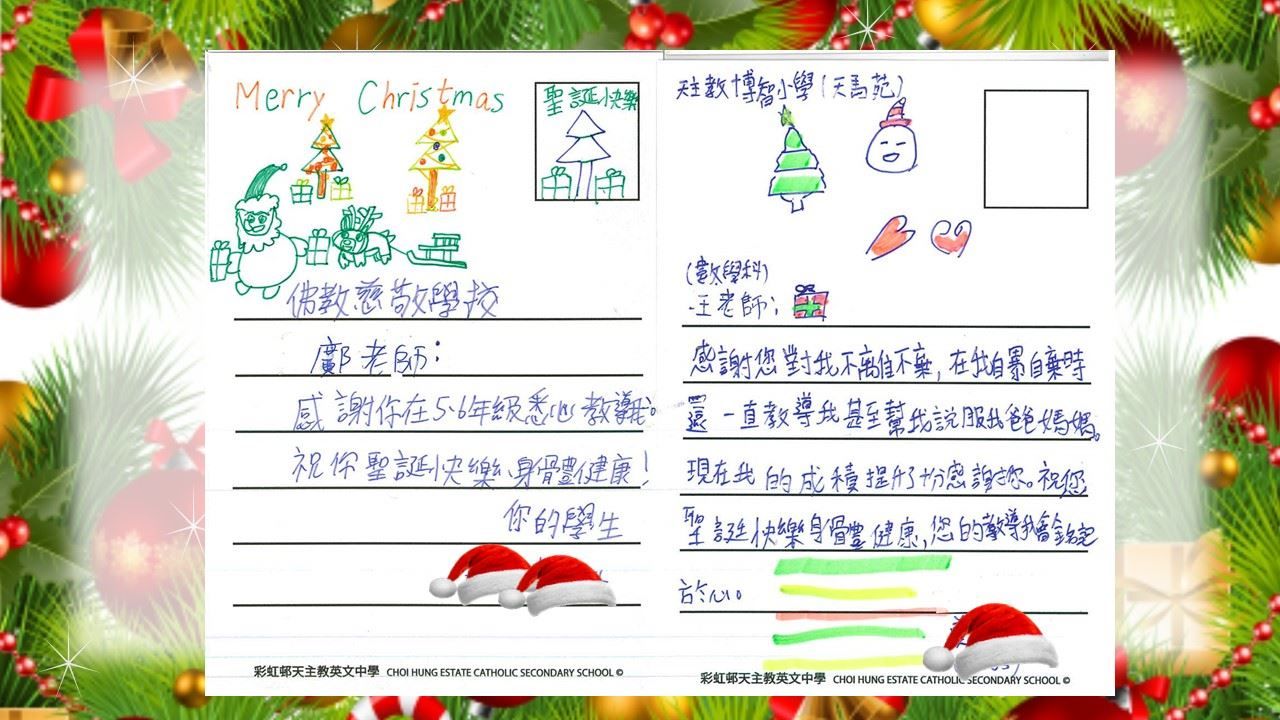 Merry Christmas
聖誕快樂
佛教慈敬學校
鄺老師：
感謝你在5-6年級悉心教導。
祝你聖誕快樂、身體健康！
你的學生
彩虹邨天主教英文中學 CHOI HUNG ESTATE CATHOLIC SECONDARY SCHOOL ©
天主教博智小學(天馬苑)
(數學科)
王老師：
感謝您對我不離不棄，在我自暴自棄時
還一直教導我甚至幫我說服我爸爸媽媽。
現在我的成積提升十分感謝您。祝您
聖誕快樂身體健康，您的教導我會銘記
於心。
彩虹邨天主教英文中學 CHOI HUNG ESTATE CATHOLIC SECONDARY SCHOOL ©